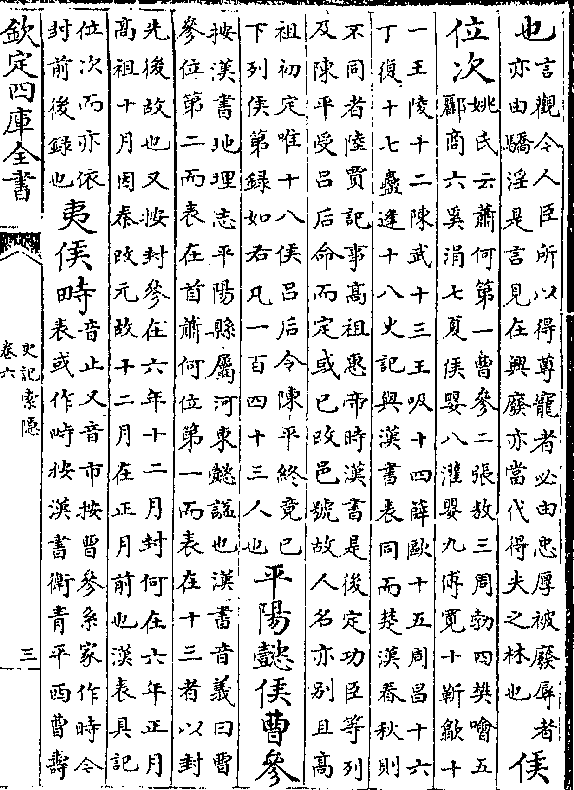 也
言觀今人臣所以得尊寵者必由忠厚被廢辱者
亦由驕淫是言見在興廢亦當代得失之林也
侯
位次
姚氏云蕭何第一曹參二張敖三周勃四樊噲五
酈商六奚涓七夏侯嬰八灌嬰九傅寛十靳歙十
一王陵十二陳武十三王吸十四薛歐十五周昌十六
丁復十七蟲逢十八史記與漢書表同而楚漢春秋則
不同者陸賈記事髙祖惠帝時漢書是後定功臣等列
及陳平受呂后命而定或已改邑號故人名亦别且髙
祖初定唯十八侯呂后令陳平終竟已
下列侯第録如右凡一百四十三人也
平陽懿侯曹參
按漢書地理志平陽縣屬河東懿諡也漢書音義曰曹
參位第二而表在首蕭何位第一而表在十三者以封
先後故也又按封參在六年十二月封何在六年正月
髙祖十月因秦改元故十二月在正月前也漢表具記
位次而亦依
封前後録也
夷侯畤
音止又音市按曹參系家作時今
表或作畤按漢書衛青平西曹壽
欽定四庫全書
史記索隱
卷六
三